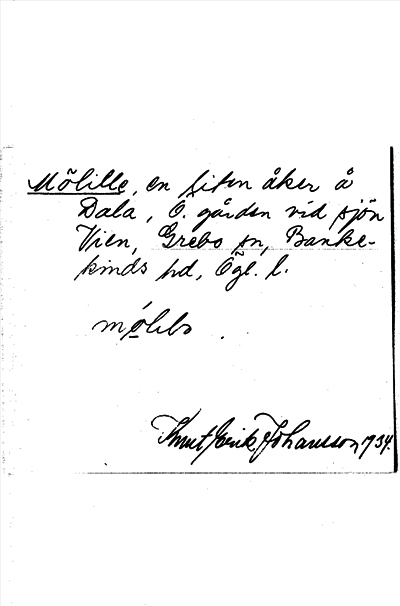 Mölille, en liten åker å
Dala, Ö. gården vid sjön
Vien, Grebo sn, Banke-
kinds hd, Ögl. l.
Knut Erik Johansson, 1934.